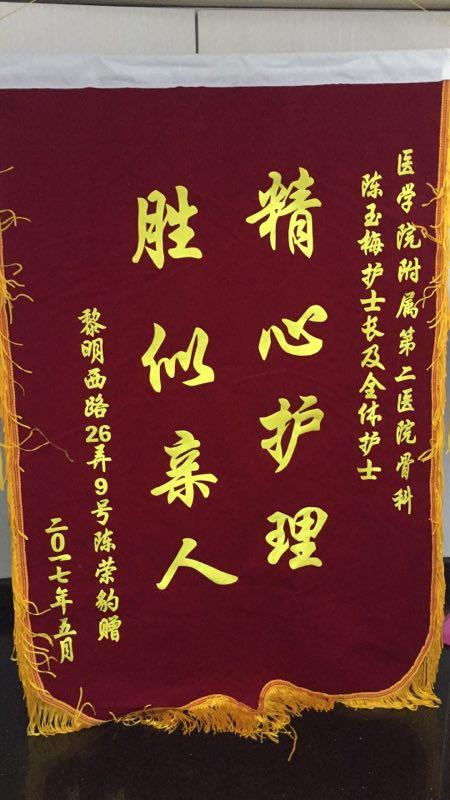 医学院附属第二医院骨科
陈玉梅护士长及全体护士
精心护理
胜似亲人
黎明西路26弄9号陈荣豹赠
二〇一七年五月